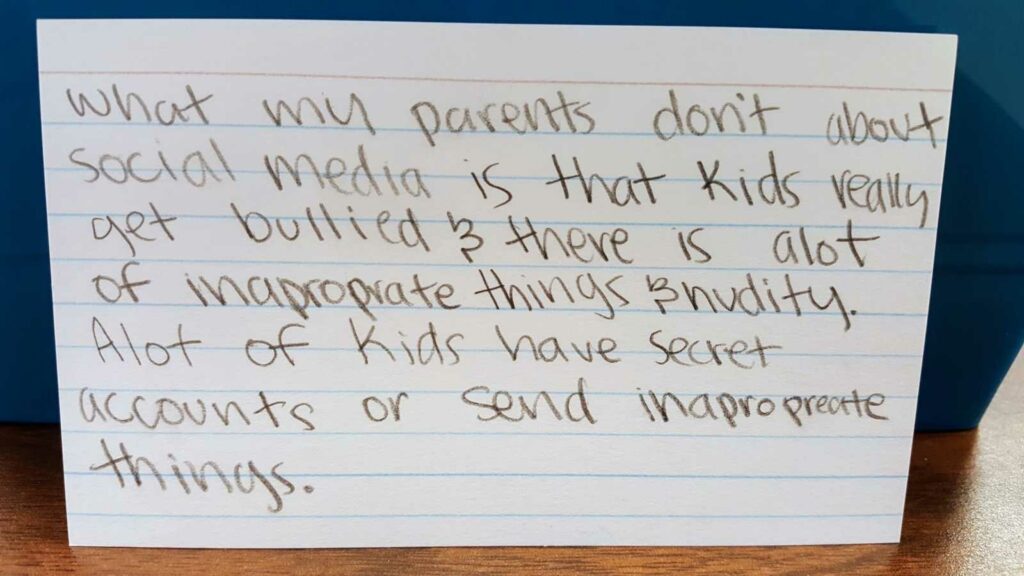 what my parents don't about
social media is that Kids really
get bullied & there is alot
of inaproprate things & nudity.
Alot of Kids have secret
accounts or send inapropreate
things.